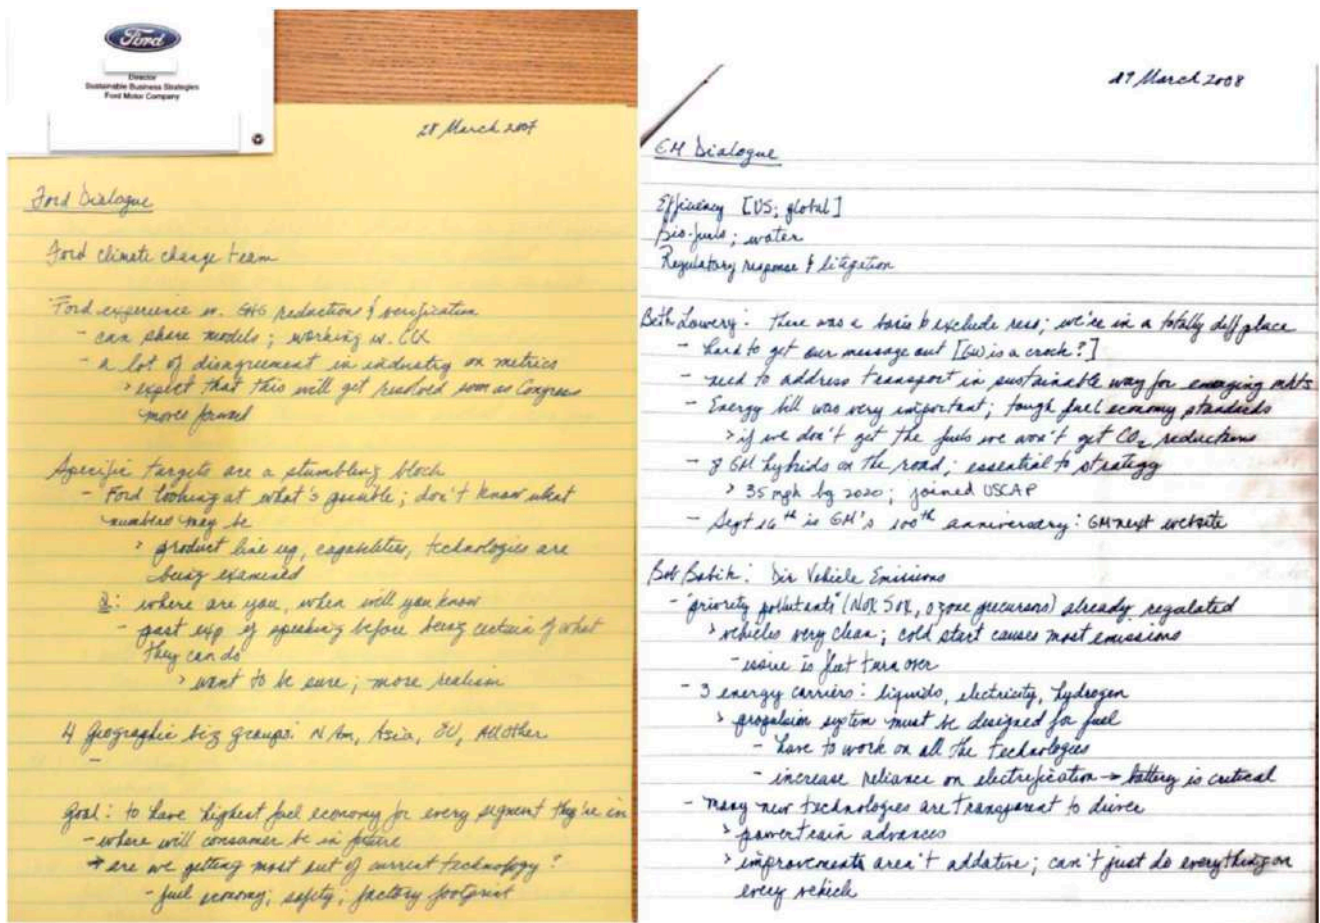 Ford
Director
Sustainable Business Strategies
Ford Motor Company
28 March 2007
Ford Dialogue
Ford climate change team
Ford experience w. GHG reductions & verification
- can share models; working w.
- a lot of disagreement in industry on metrics
> expect that this will get resolved soon as Congress
moves forward
Specific targets are a stumbling block
- Ford looking at what's possible; don't know what
numbers may be
> product line up, capabilities, technologies are
being examined
Q: where are you, when will you know
- past exp of speaking before being certain of what
they can do
> want to be sure; more realism
4 geographic biz groups: N Am, Asia, EU, All Other
-
Goal: to have highest fuel economy for every segment they're in
- where will consumer be in future
* are we getting most out of current technology?
- fuel economy; safety; factory footprint
March 2008
GM Dialogue
Efficiency [US; global]
Bio-fuels; water
Regulatory response & litigation
Beth Lowery: there was a basis to exclude; we're in a totally diff place
- hard to get our message out [GW is a crock?]
- need to address transport in sustainable way for emerging mkts
- Energy bill was very important; tough fuel economy standards
> if we don't get the fuels we won't get CO₂ reductions
- 8 GM hybrids on the road; essential to strategy
> 35 mpg by 2020; joined USCAP
- Sept 16th is GM's 100th anniversary: GMnext website
Bob Babik: Dir Vehicle Emissions
- "priority pollutants" (NOX SOX, ozone precursors) already regulated
> vehicles very clean; cold start causes most emissions
- issue is fleet turn over
- 3 energy carriers: liquids, electricity, hydrogen
> propulsion system must be designed for fuel
- have to work on all the technologies
- increase reliance on electrification → battery is critical
- many new technologies are transparent to driver
> powertrain advances
> improvements aren't addative; can't just do everything on
every vehicle